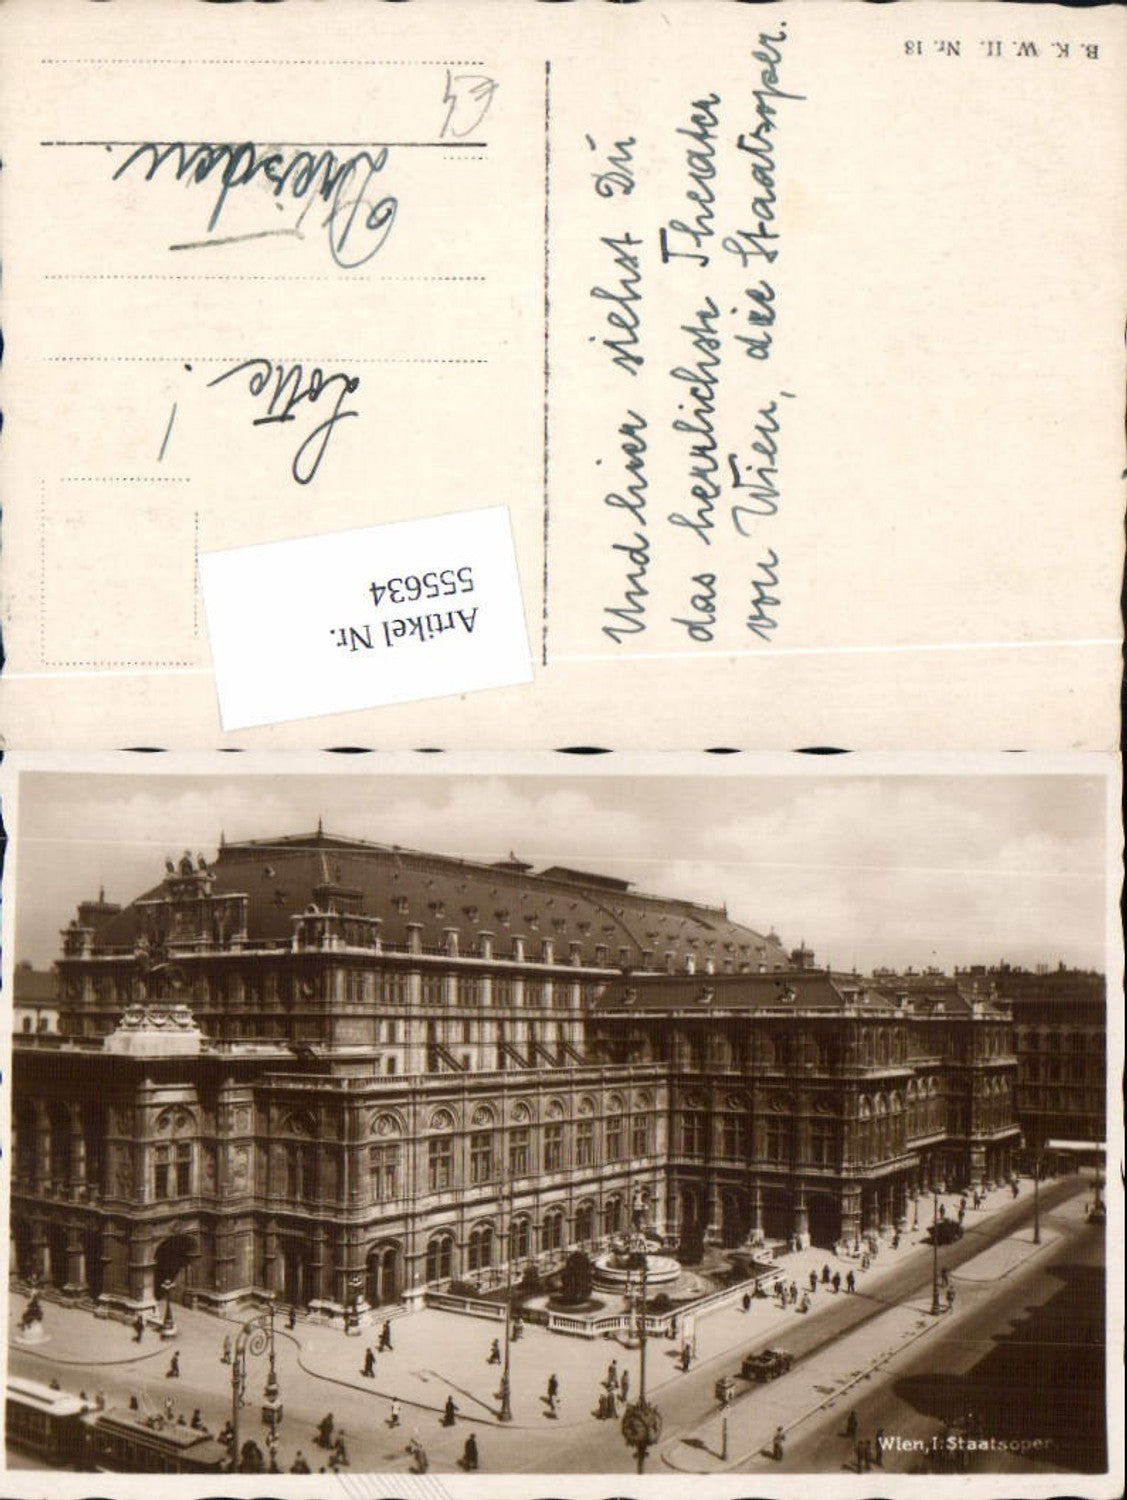 B. K. W. II. Nr. 18
Und hier siehst Du
das herrlichste Theater
von Wien, die Staatsoper.
Lotte!
Dresden.
Artikel Nr.
555634
Wien, I: Staatsoper